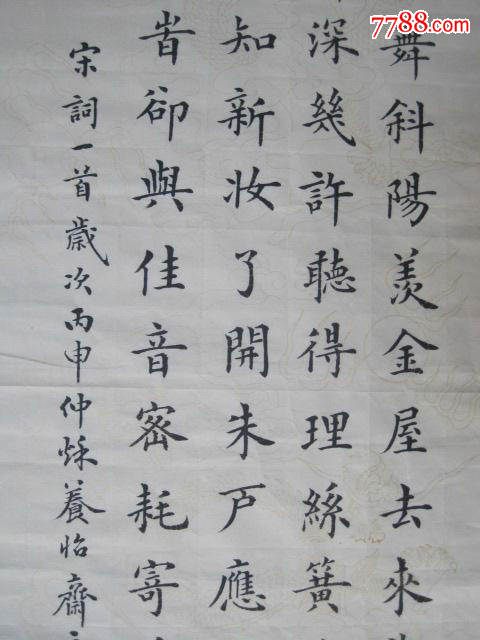 7788.com
舞斜陽羨金屋去來
深幾許聽得理絲簧
知新妆了開朱戸應
昔卻與佳音密耗寄
宋詞一首歲次丙申仲秌養怡齋